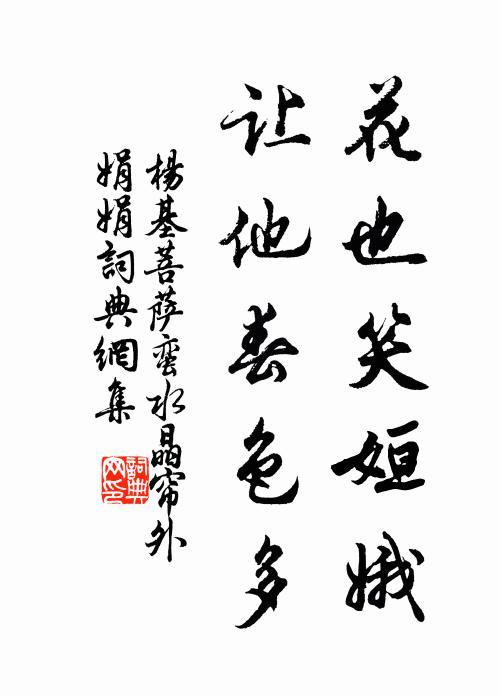 花也笑姮娥
让他春色多
楊基菩萨蛮水晶帘外
娟娟詞典網集
詞典网印